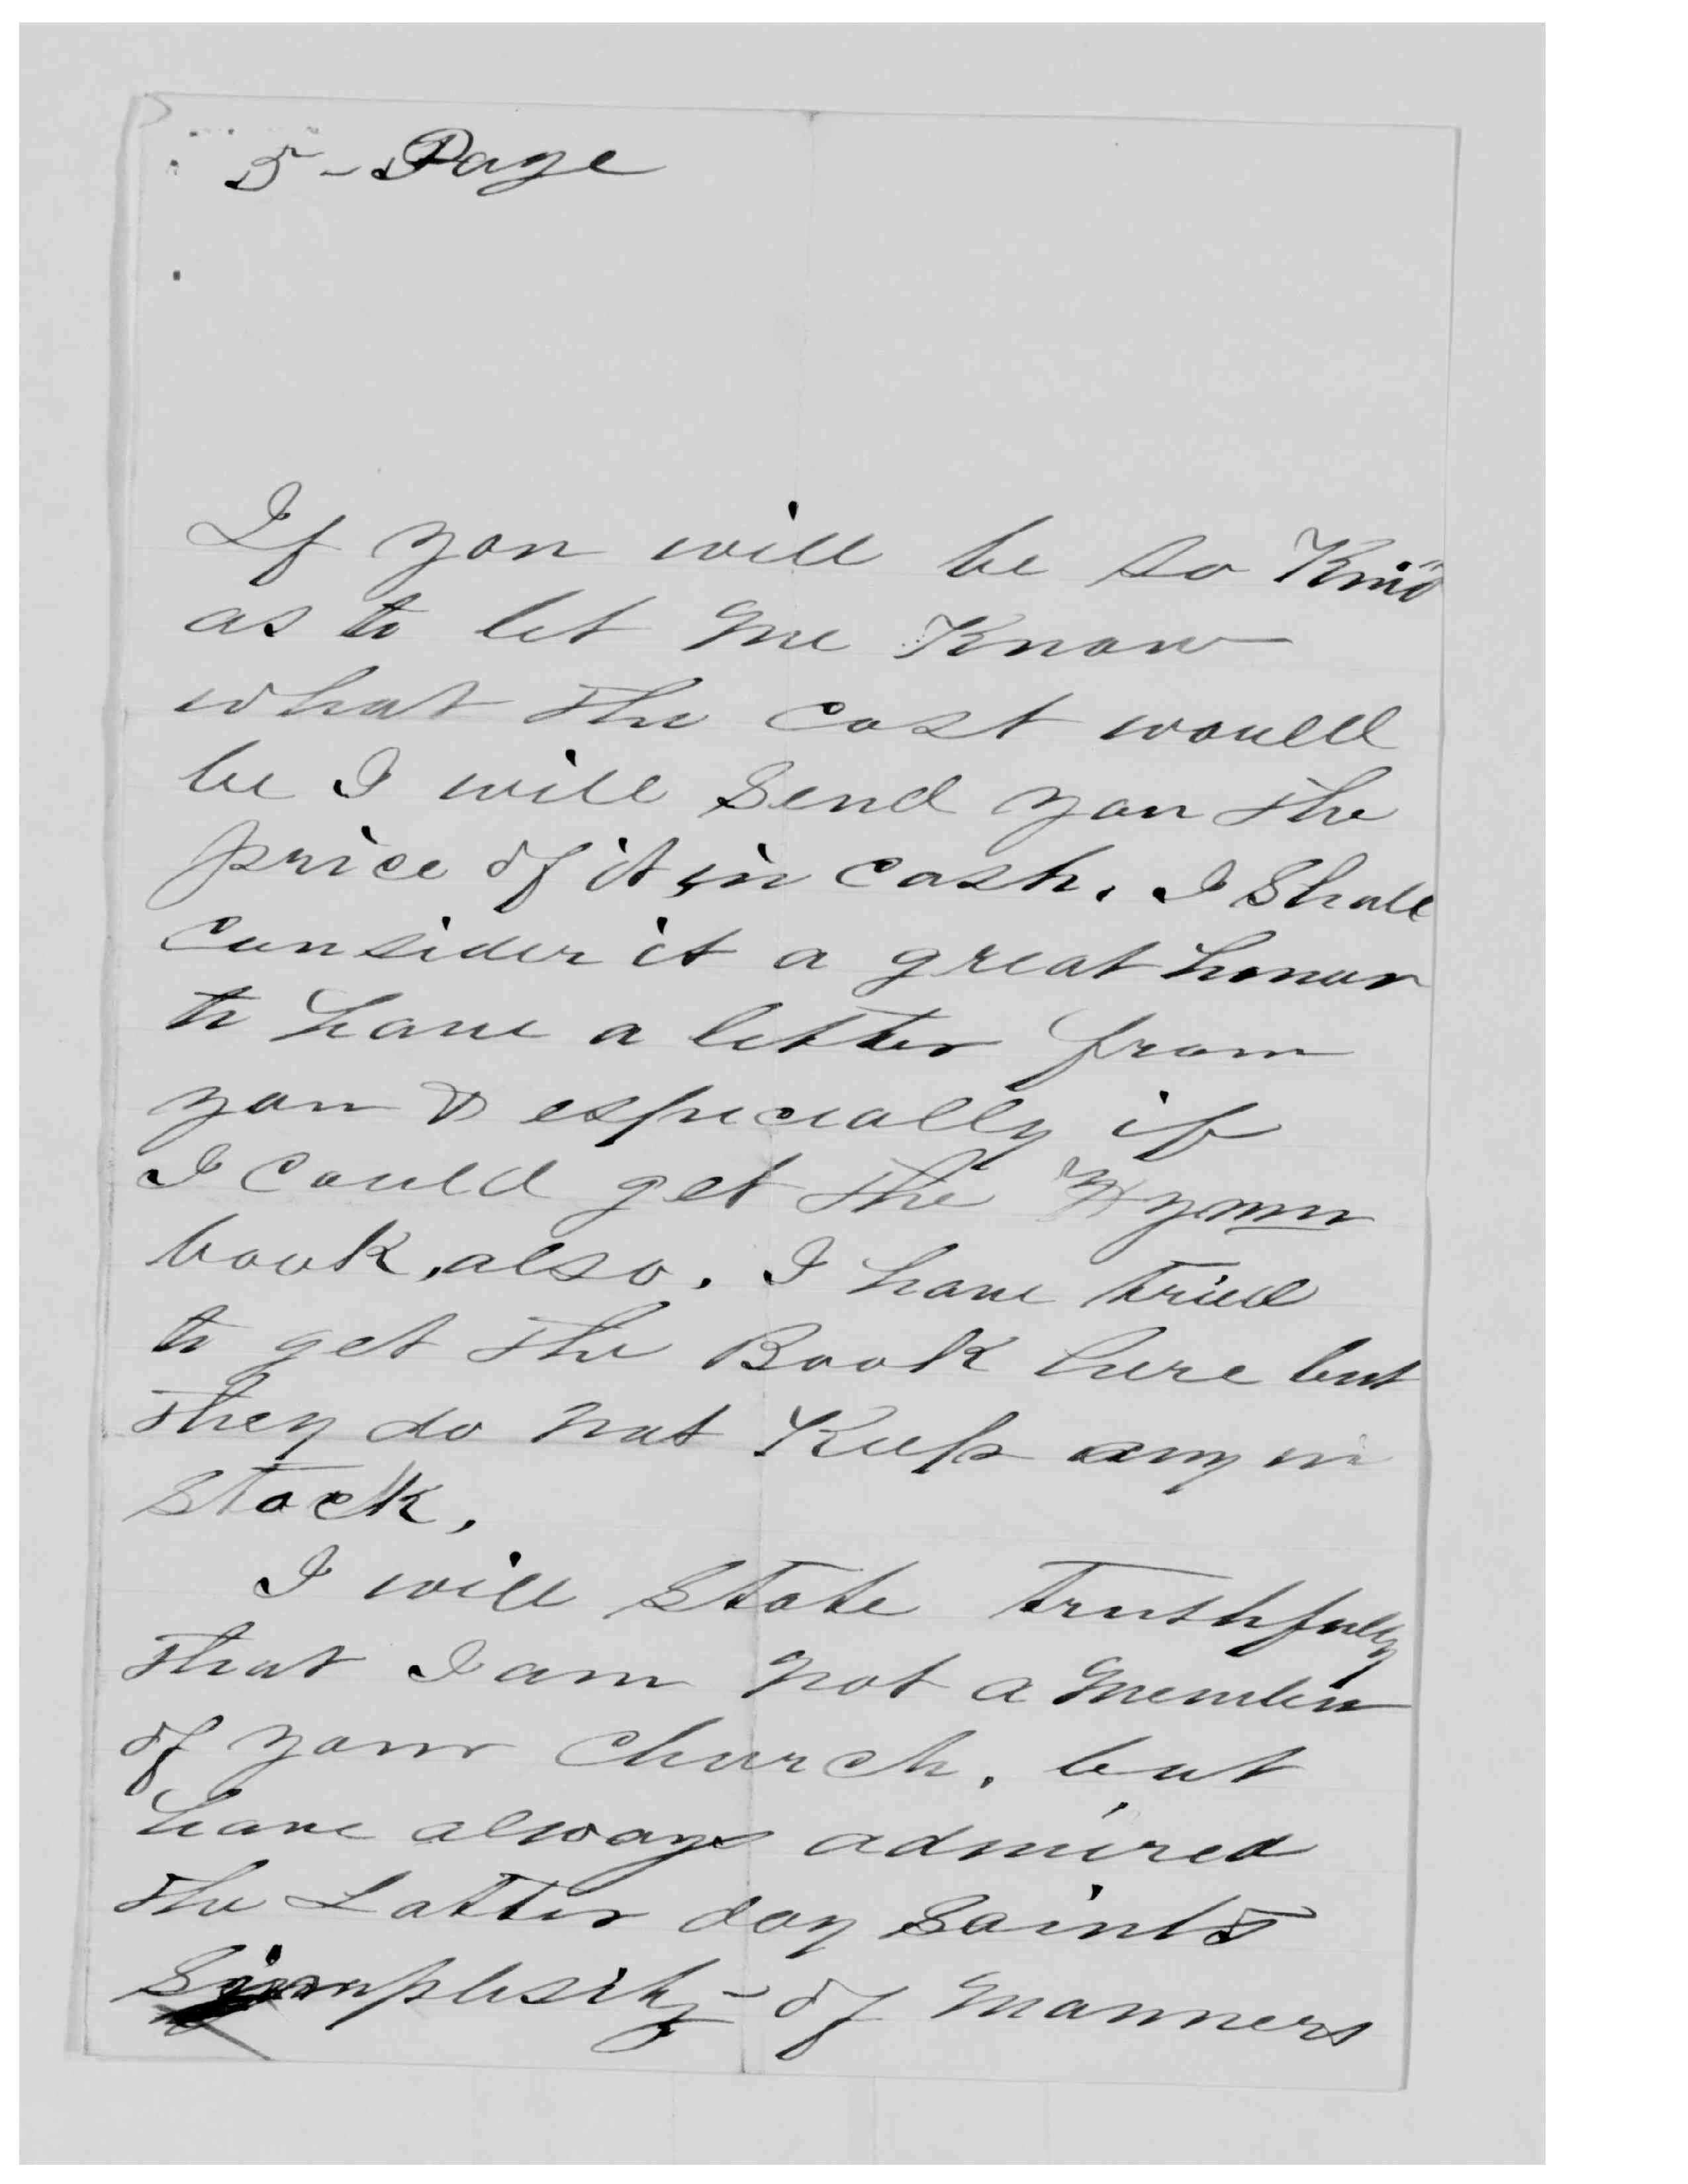 5 - Page
If you will be so Kind
as to let me Know
what the cost would
be I will send you the
price of it, in cash. I Shall
consider it a great honor
to have a letter from
you & especially if
I could get the Hymn
book, also. I have tried
to get the Book here but
they do not Keep any in
stock.
I will state truthfully
that I am not a member
of your church. but
have always admired
the Latter day Saints
Simplesity - of manners